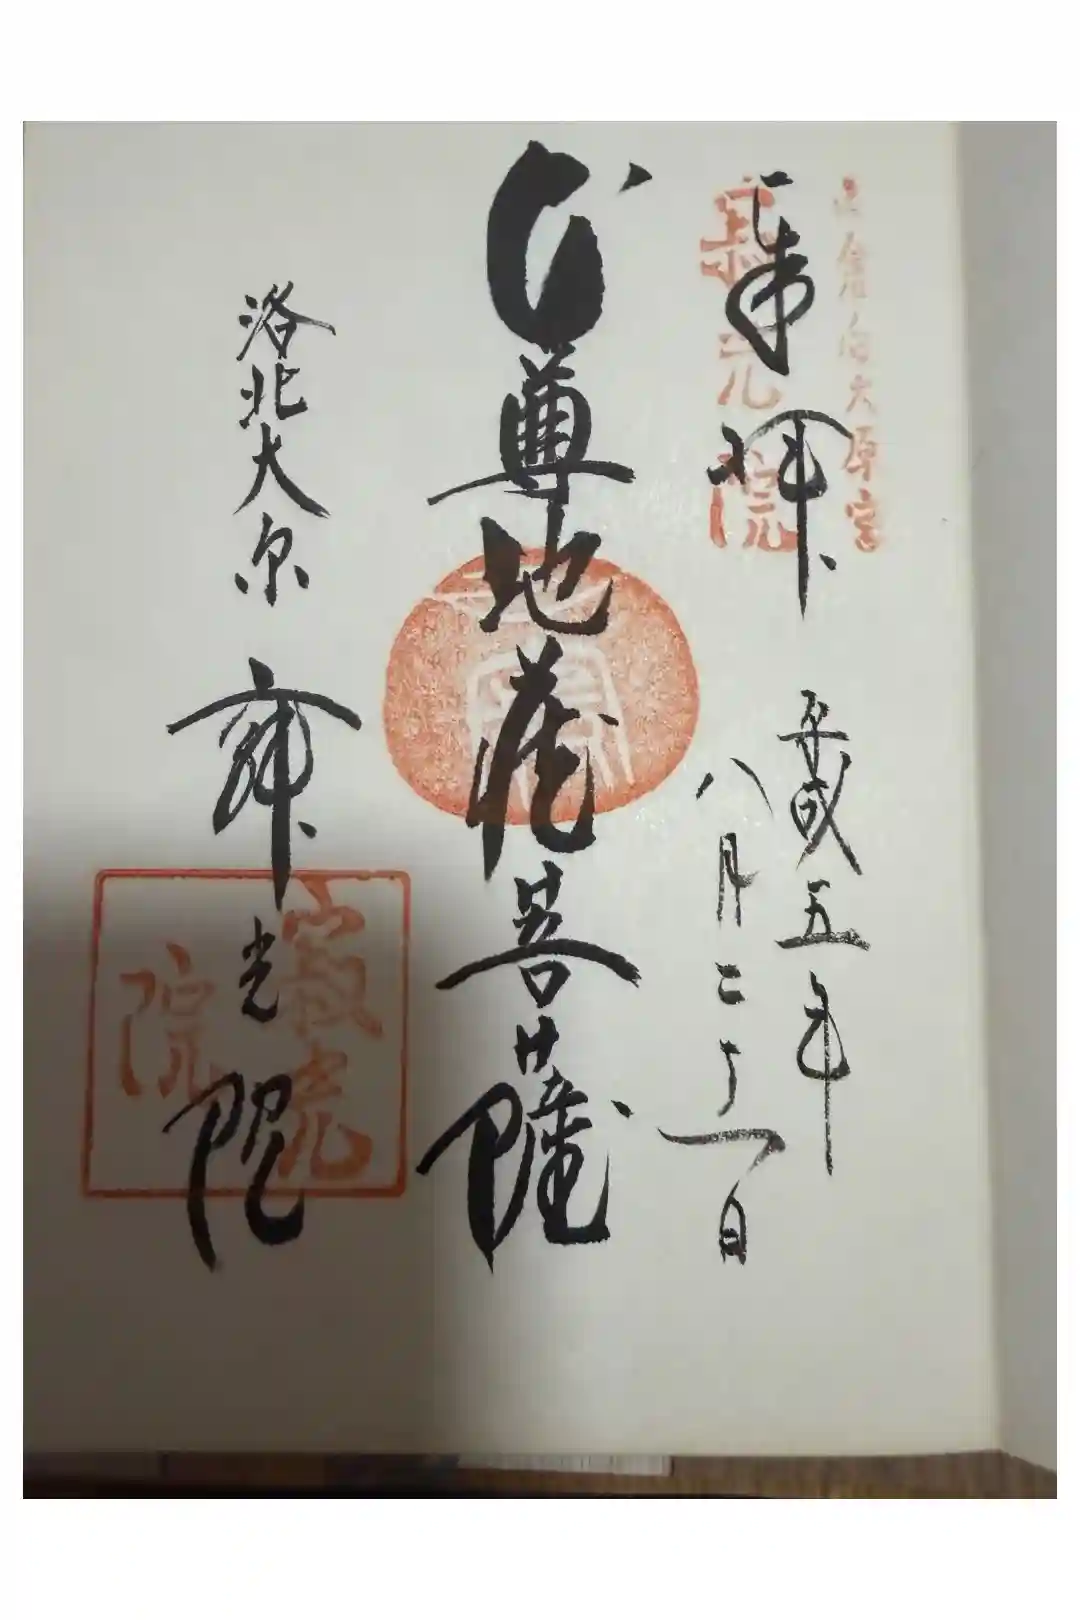 寂光院
奉拝
平成五年
八月二十一日
尊地蔵菩薩
洛北大原
寂光院
寂光院